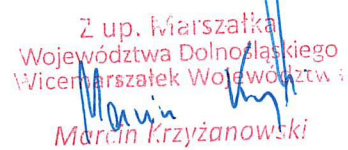 Z up. Marszałka
Województwa Dolnośląskiego
Wicemarszałek Województwa
Marcin Krzyżanowski